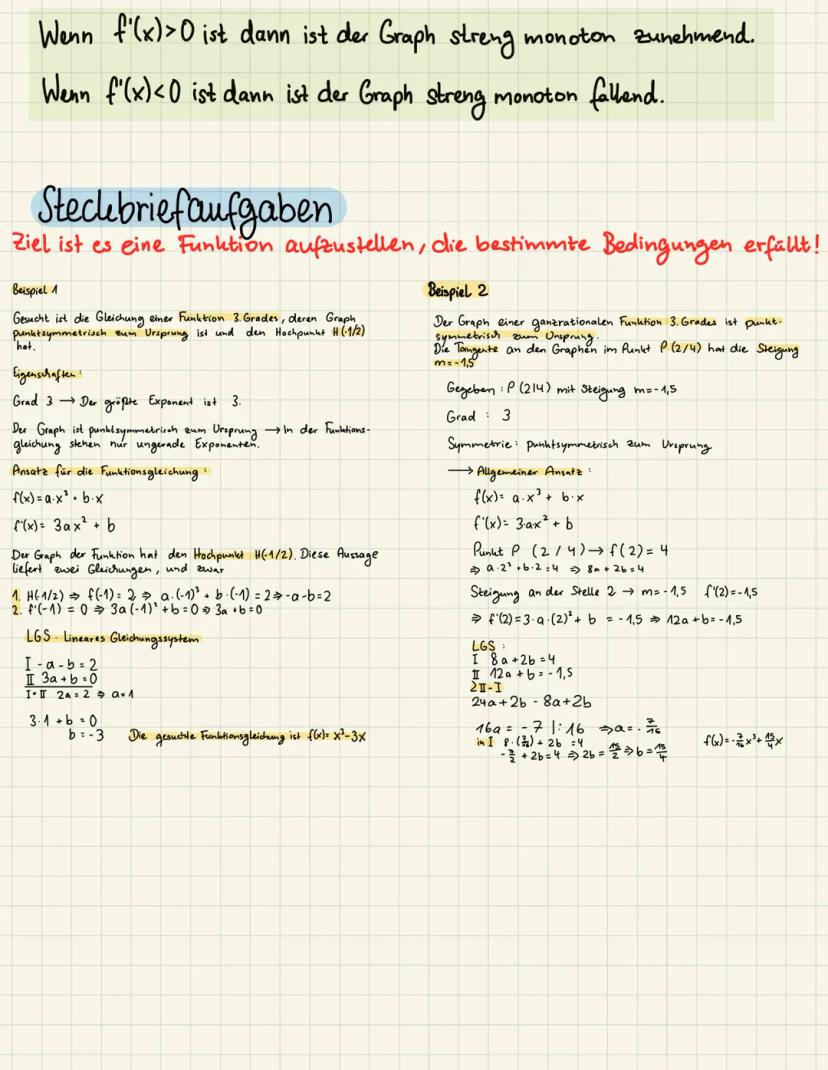 Wenn f'(x)>0 ist dann ist der Graph streng monoton zunehmend.
Wenn f'(x)<0 ist dann ist der Graph streng monoton fallend.
Steckbriefaufgaben
Ziel ist es eine Funktion aufzustellen, die bestimmte Bedingungen erfüllt!
Beispiel 1
Gesucht ist die Gleichung einer Funktion 3. Grades, deren Graph
punktsymmetrisch zum Ursprung ist und den Hochpunkt H(-1/2)
hat.
Eigenschaften:
Grad 3 → Der größte Exponent ist 3.
Der Graph ist punktsymmetrisch zum Ursprung → In der Funktions-
gleichung stehen nur ungerade Exponenten.
Ansatz für die Funktionsgleichung:
f(x)=a·x³+b·x
f'(x)= 3ax² + b
Der Graph der Funktion hat den Hochpunkt H(-1/2). Diese Aussage
liefert zwei Gleichungen, und zwar
1. H(-1/2) ⇒ f(-1) = 2 ⇒ a·(-1)³ + b·(-1) = 2 ⇒ -a-b=2
2. f'(-1) = 0 ⇒ 3a(-1)² + b = 0 ⇒ 3a + b = 0
LGS - Lineares Gleichungssystem
I -a-b=2
II 3a+b=0
I+II 2a=2 ⇒ a=1
3·1+b=0
b=-3 Die gesuchte Funktionsgleichung ist f(x)= x³-3x
Beispiel 2
Der Graph einer ganzrationalen Funktion 3. Grades ist punkt-
symmetrisch zum Ursprung.
Die Tangente an den Graphen im Punkt P(2/4) hat die Steigung
m=-1,5
Gegeben: P(2|4) mit Steigung m=-1,5
Grad : 3
Symmetrie: punktsymmetrisch zum Ursprung
→ Allgemeiner Ansatz:
f(x)= a·x³ + b·x
f'(x)= 3·ax² + b
Punkt P (2/4) → f(2) = 4
⇒ a·2³+b·2=4 ⇒ 8a+2b=4
Steigung an der Stelle 2 → m=-1,5 f'(2)=-1,5
⇒ f'(2)=3·a·(2)²+b = -1,5 ⇒ 12a+b=-1,5
LGS:
I 8a+2b=4
II 12a+b=-1,5
2II-I
24a+2b - 8a+2b
16a = -7 |:16 ⇒ a=-7/16
in I 8·(7/16) + 2b = 4
-7/2 + 2b = 4 ⇒ 2b = 15/2 ⇒ b = 15/4
f(x)=-7/16x³+15/4x